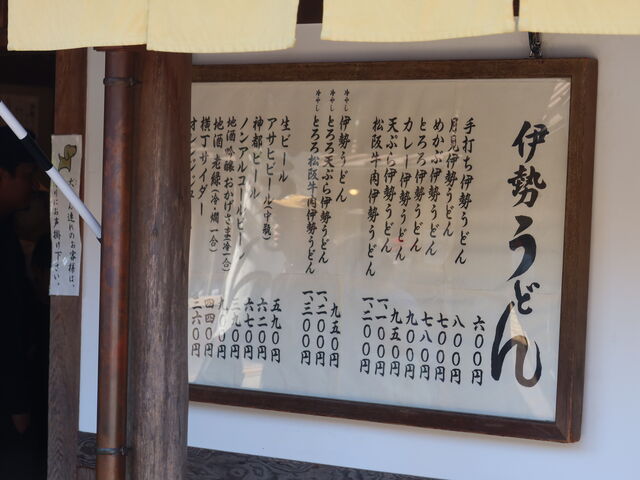 伊勢うどん
手打ち伊勢うどん 六〇〇円
月見伊勢うどん 八〇〇円
めかぶ伊勢うどん 七〇〇円
とろろ伊勢うどん 七八〇円
カレー伊勢うどん 九〇〇円
天ぷら伊勢うどん 九五〇円
松阪牛肉伊勢うどん 一、一〇〇円
一、二〇〇円
冷やし 伊勢うどん 九五〇円
冷やし とろろ天ぷら伊勢うどん 一、二〇〇円
冷やし とろろ松阪牛肉伊勢うどん 一、三〇〇円
生ビール 五九〇円
アサヒビール(中瓶) 六二〇円
神都ビール 六七〇円
ノンアルコールビール
地酒 吟醸おかげさま(冷一合)
地酒 老緑(冷、燗 一合)
横丁サイダー 四四〇円
オレンジジュース 三六〇円
お連れのお客様は、
にお声掛け下さい。